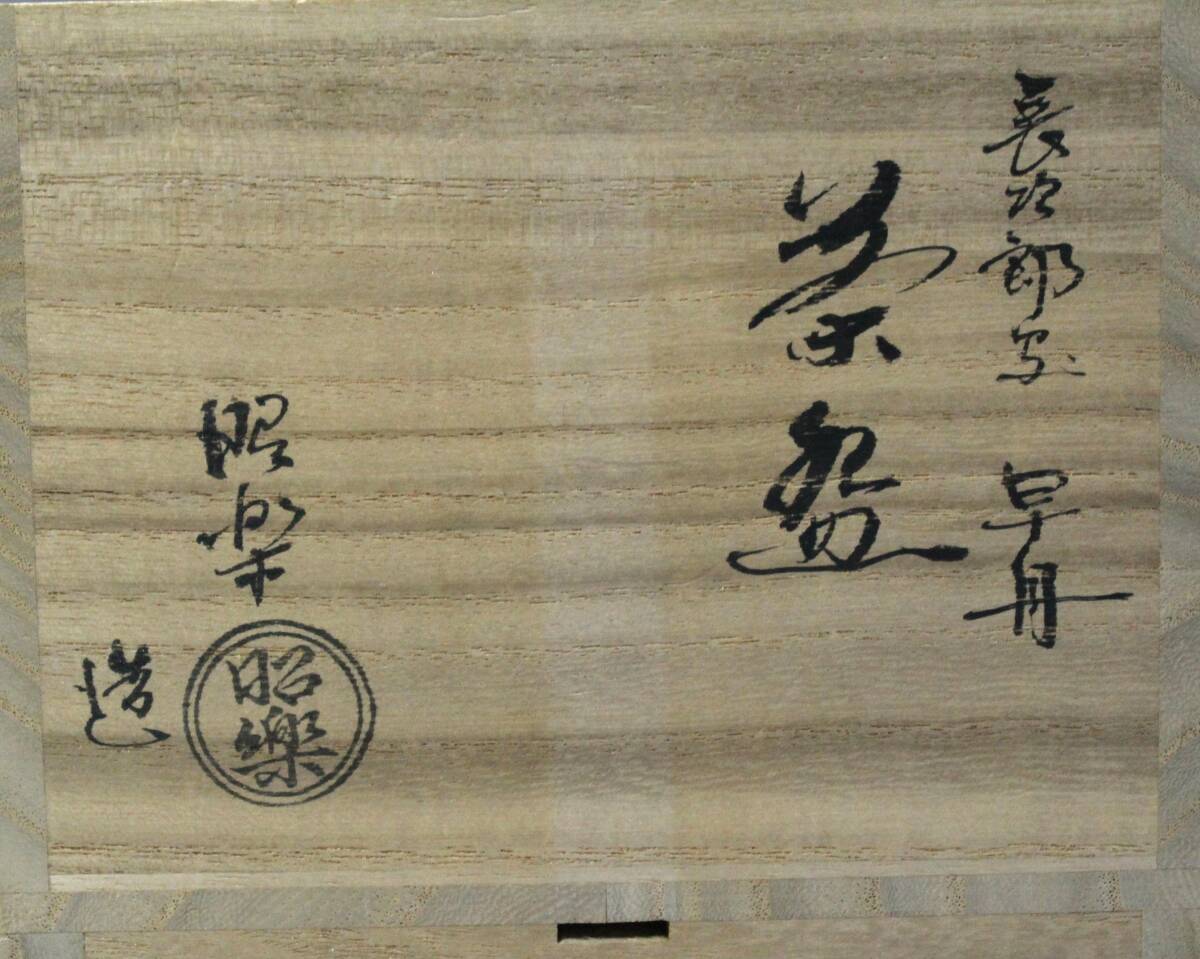 長次郎写 早舟
茶盌
昭楽
昭樂
造